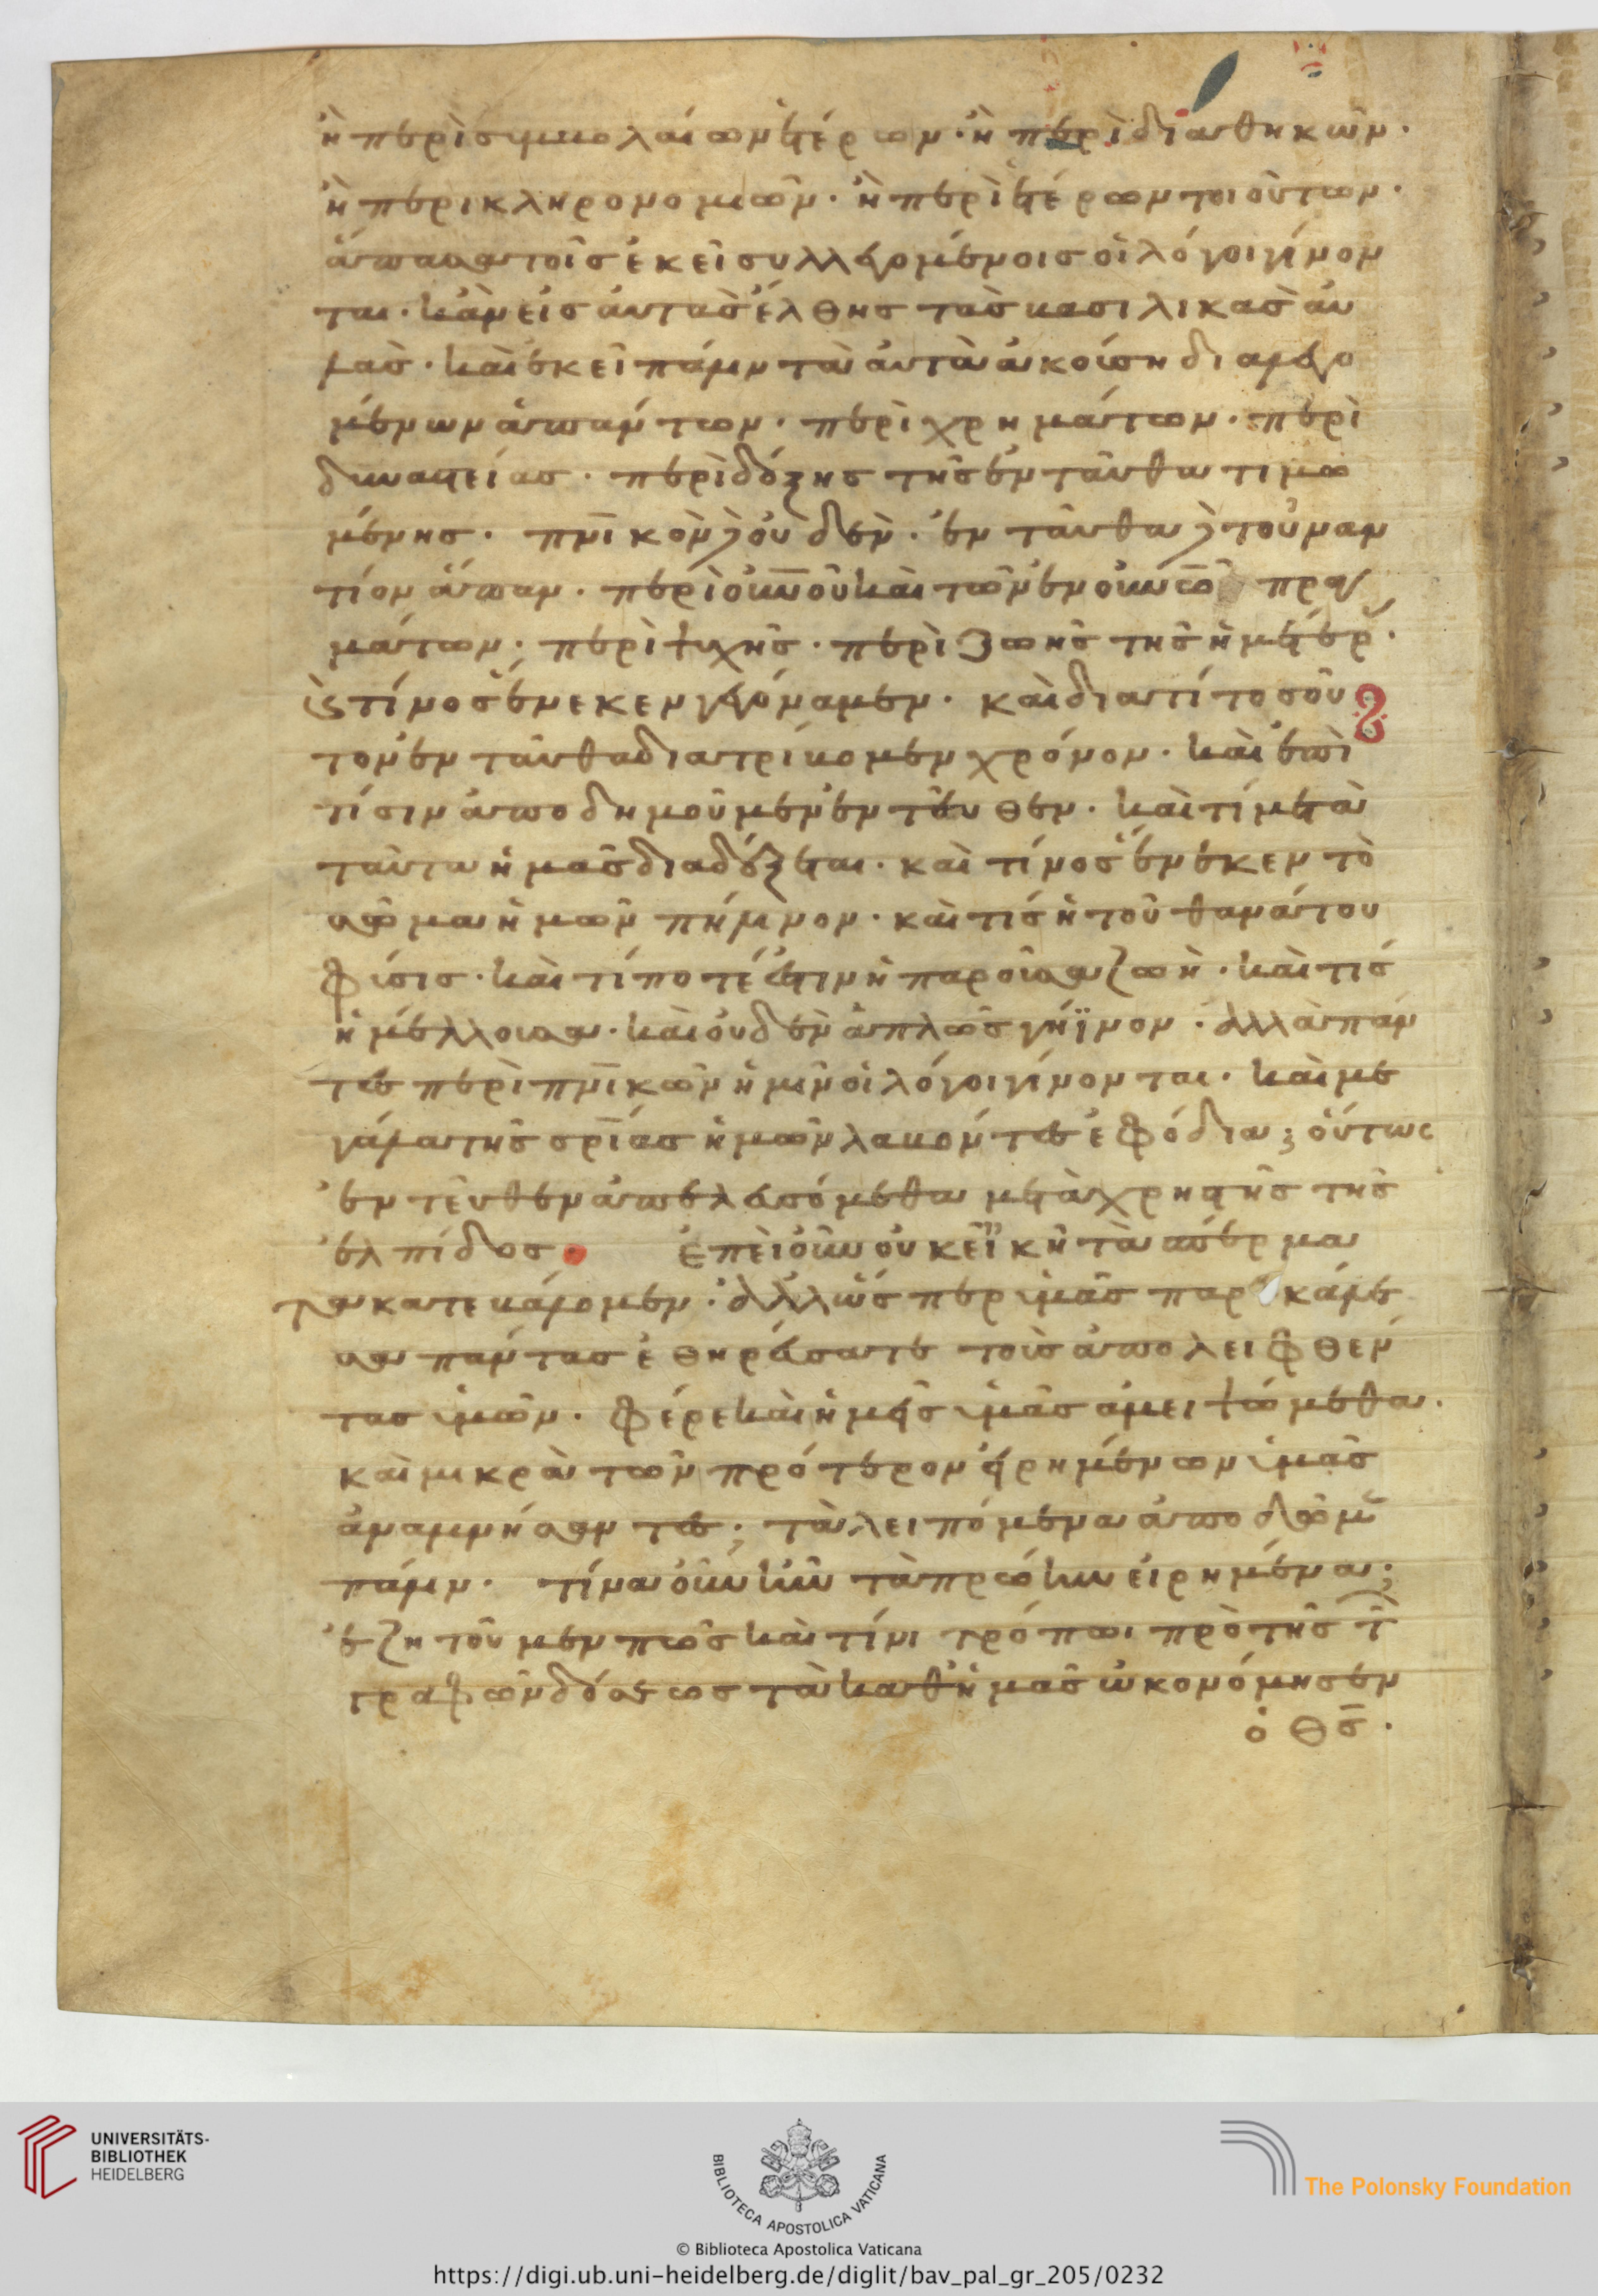 ἢ περὶ συμβολαίων ἑτέρων· ἢ περὶ διαθηκῶν·
ἢ περι κληρονομιῶν· ἢ περὶ ἑτέρων τοιούτων·
ἅπασα τοῖς ἐκεῖ συλλεγομένοις οἱ λόγοι γίνον
ται· κἂν εἰς αὐτὰς ἔλθης τὰς βασιλικὰς αὐ
λὰς· καὶ ἐκεῖ πάλιν τὰ αὐτὰ ἀκούση διαλεγο
μένων ἁπάντων· περὶ χρημάτων· περὶ
δυναστείας· περὶ δόξης τῆς ἐνταῦθα τιμω
μένης· πνικὸν δὲ οὐδὲν· ἐνταῦθα δὲ τοὐναν
τίον ἅπαν· περὶ οὐνοῦ καὶ τῶν ἐν οὐνῶ πραγ
μάτων· περὶ ψυχῆς· περὶ ζωῆς τῆς ἡμετέρ·
τίνος ἕνεκεν γεγόναμεν· καὶ διατί τοσοῦ
τον ἐνταῦθα διατρίβομεν χρόνον· καὶ ἐπὶ
τίσιν ἀποδημοῦμεν ἐντεῦθεν· καὶ τί μετὰ
ταῦτα ἡμᾶς διαδέξεται· καὶ τίνος ἕνεκεν τὸ
σῶμα ἡμῶν πήλινον· καὶ τίς ἡ τοῦ θανάτου
φύσις· καὶ τί ποτέ ἐστιν ἡ παροῦσα ζωὴ· καὶ τίς
ἡ μέλλουσα· καὶ οὐδὲν ἁπλῶς γήϊνον· ἀλλὰ πάν
τες περὶ πνικῶν ἡμῖν οἱ λόγοι γίνονται· καὶ με
γάλα τῆς σρίας ἡμῶν λαβόντες ἐφόδια; οὕτως
ἐντεῦθεν ἀπελευσόμεθα μετὰ χρηστῆς τῆς
ἐλπίδος· ἐπεὶ οὖν οὐκ εἰκῆ τὰ σπέρμα
τα κατεβάλομεν· ἀλλ' ὥσπερ ὑμᾶς παρεκάλε
σα πάντας ἐθηρεύσατε τοὺς ἀπολειφθέν
τας ὑμῶν· φέρε καὶ ἡμεῖς ὑμᾶς ἀμειψώμεθα·
καὶ μικρὰ τῶν πρότερον εἰρημένων ὑμᾶς
ἀναμνήσαντες; τὰ λειπόμενα ἀποδῶμεν
πάλιν· τίνα οὖν ἦν τὰ πρώην εἰρημένα;
ἐζητοῦμεν πῶς καὶ τίνι τρόπωι πρὸ τῆς τῶν
γραφῶν δόσεως τὰ καθ' ἡμᾶς ὠκονόμησεν
ὁ θς·
UNIVERSITÄTS-
BIBLIOTHEK
HEIDELBERG
BIBLIOTECA APOSTOLICA VATICANA
The Polonsky Foundation
© Biblioteca Apostolica Vaticana
https://digi.ub.uni-heidelberg.de/diglit/bav_pal_gr_205/0232